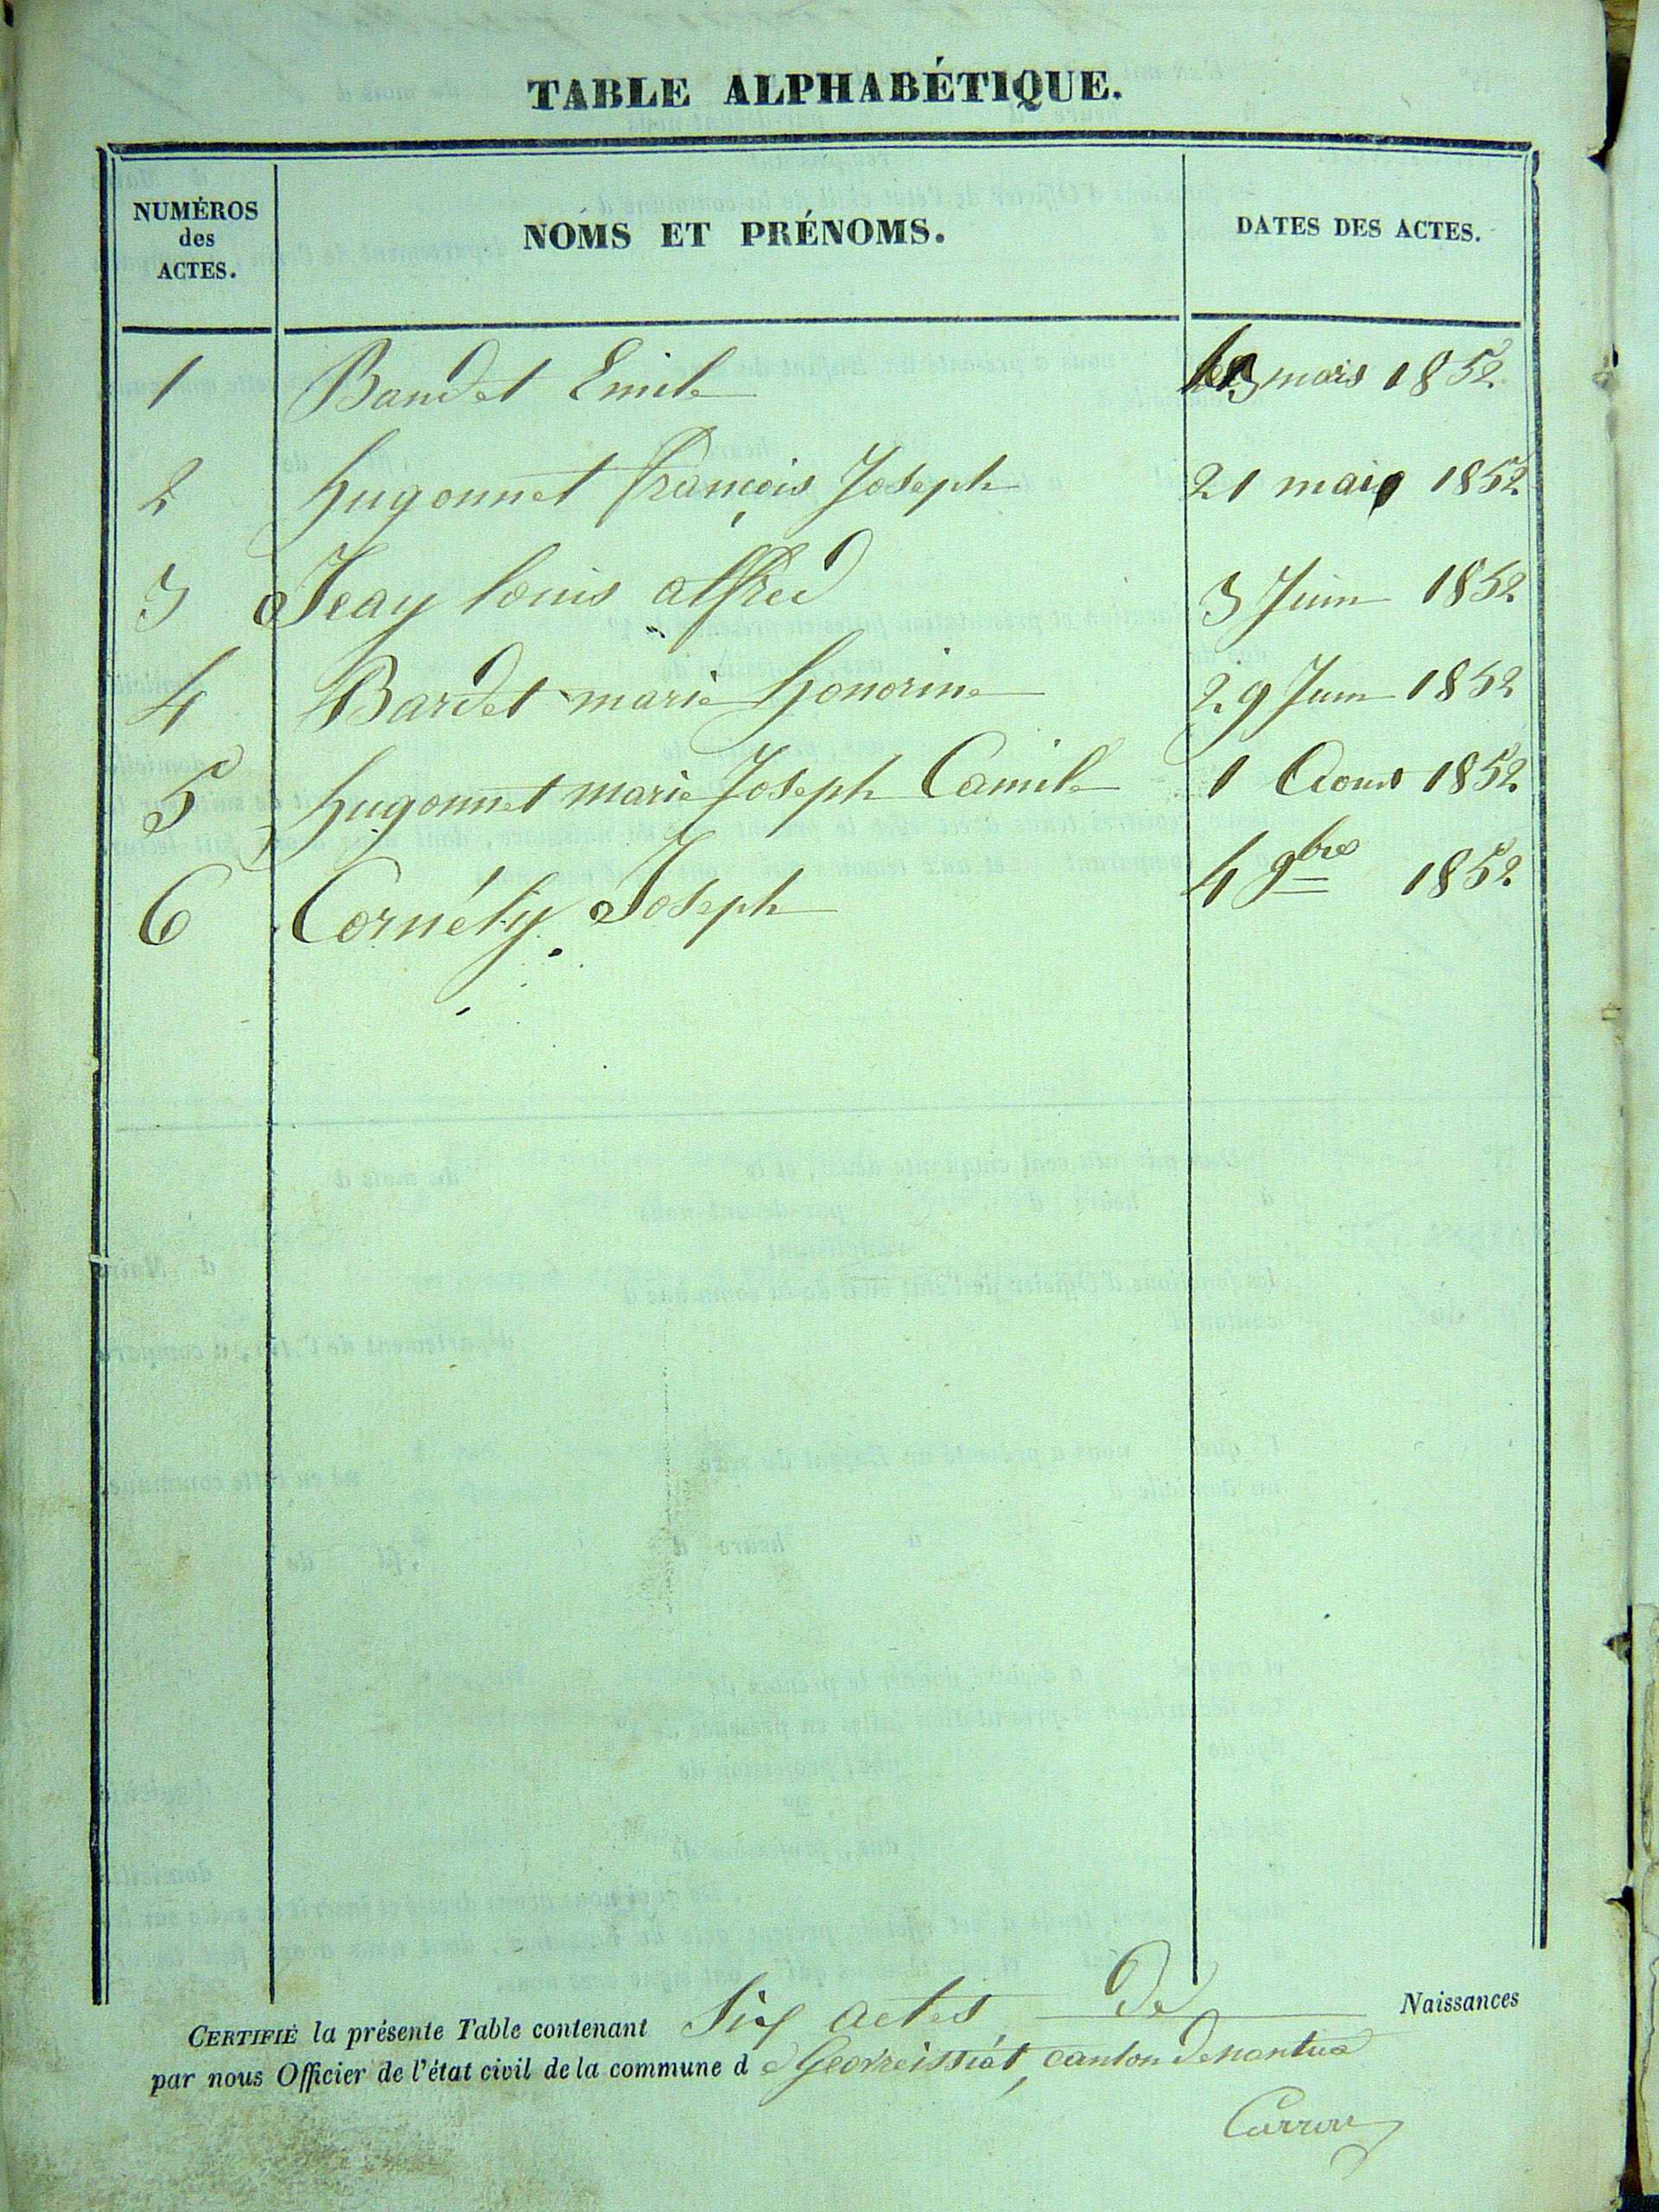 TABLE ALPHABÉTIQUE.
NUMÉROS
des
ACTES.
NOMS ET PRÉNOMS.
DATES DES ACTES.
1 Baudet Emile mars 1852
2 hugonnet françois Joseph 21 mai 1852
3 Jeay louis alfred 3 Juin 1852
4 Bardet marie honorine 29 Juin 1852
5 hugonnet marie Joseph Camile 1 Aout 1852
6 Cornély Joseph 4 9bre 1852
CERTIFIÉ la présente Table contenant Six actes de Naissances
par nous Officier de l'état civil de la commune d e Geovreissiat, canton de nantua